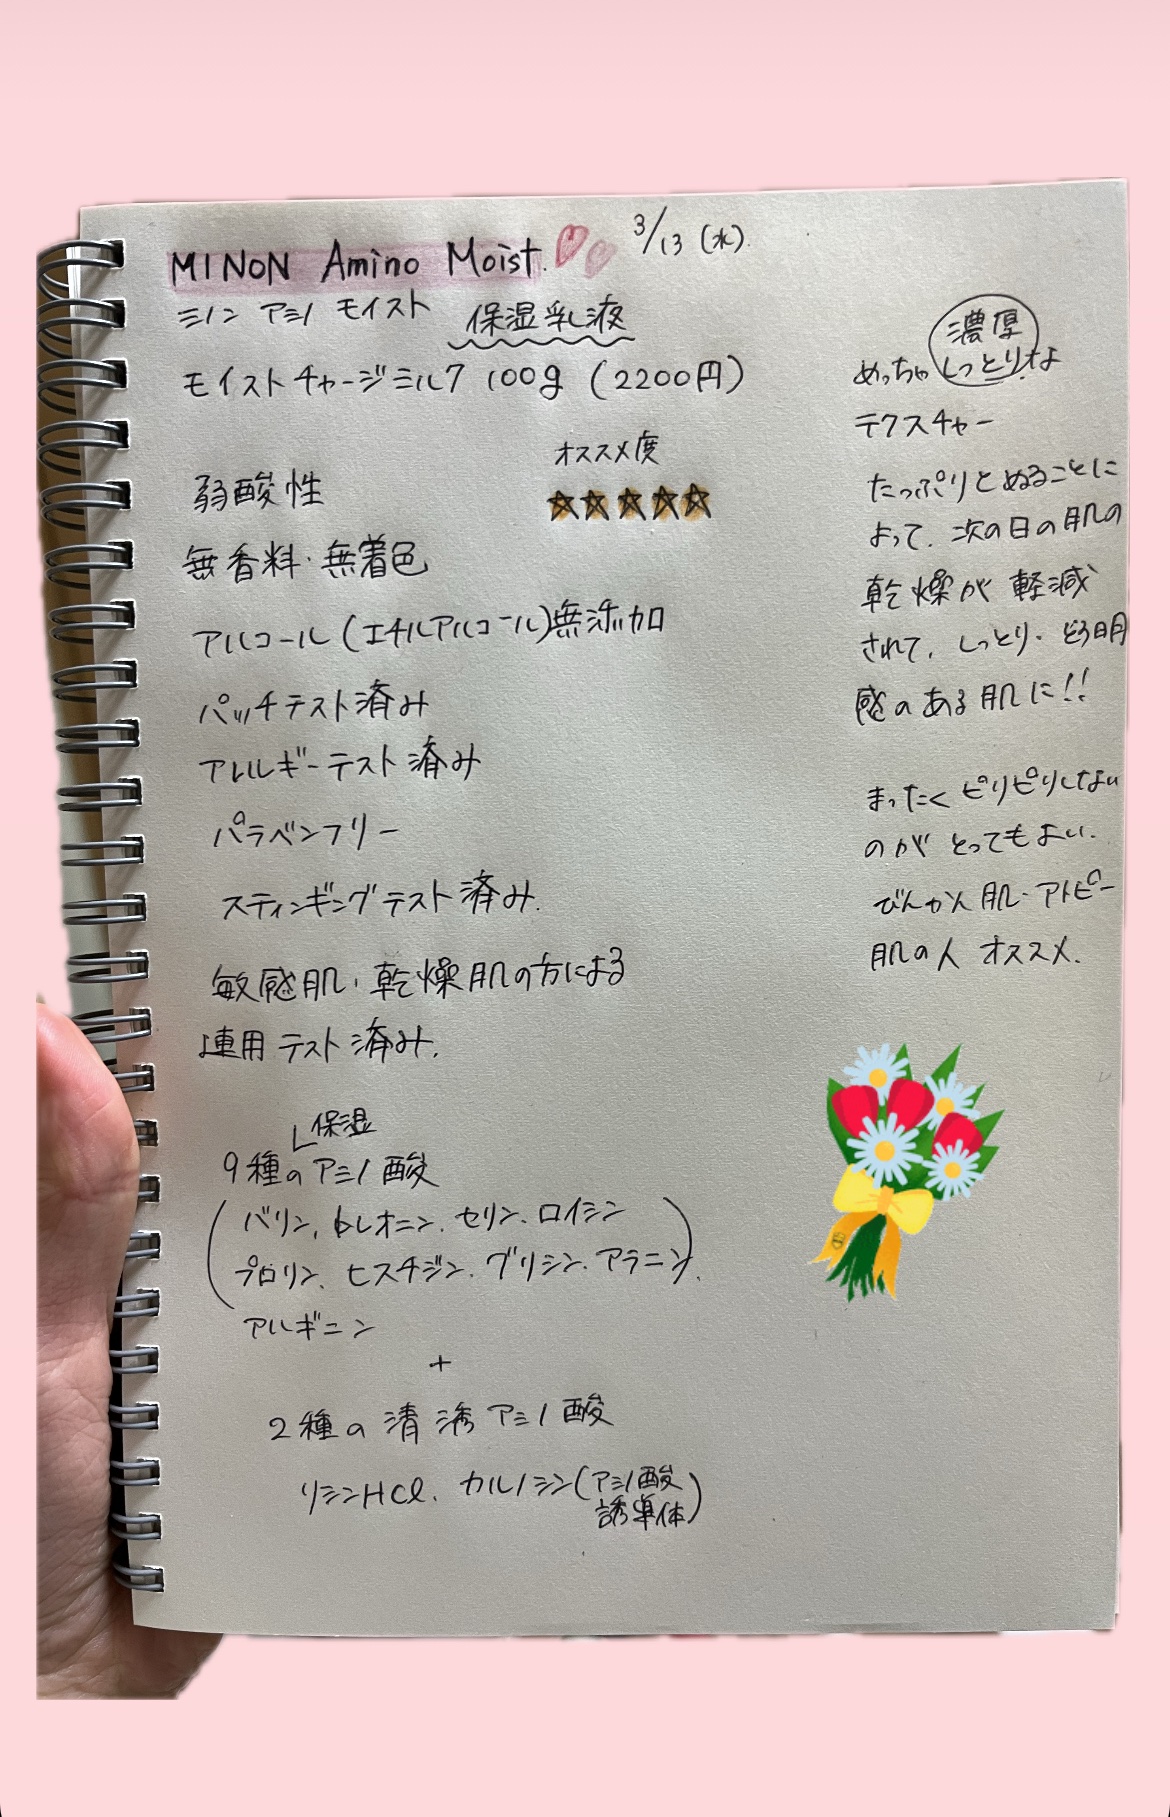 MINON Amino Moist.
3/13 (水).
ミノン アミノ モイスト 保湿乳液
モイストチャージミルク 100g (2200円)
オススメ度
☆☆☆☆☆
弱酸性
無香料・無着色
アルコール (エチルアルコール)無添加
パッチテスト済み
アレルギーテスト済み
パラベンフリー
スティンギングテスト済み.
敏感肌・乾燥肌の方による
連用テスト済み.
保湿
9種のアミノ酸
(バリン, トレオニン、セリン、ロイシン
プロリン、ヒスチジン、グリシン、アラニン)
アルギニン
+
2種の清透アミノ酸
リシンHCl、カルノシン(アミノ酸
誘導体)
濃厚
めっちゃしっとりな
テクスチャー
たっぷりとぬることに
よって、次の日の肌の
乾燥が軽減
されて、しっとり・とう明
感のある肌に!!
まったくピリピリしない
のがとってもよい.
びんかん肌・アトピー
肌の人オススメ.